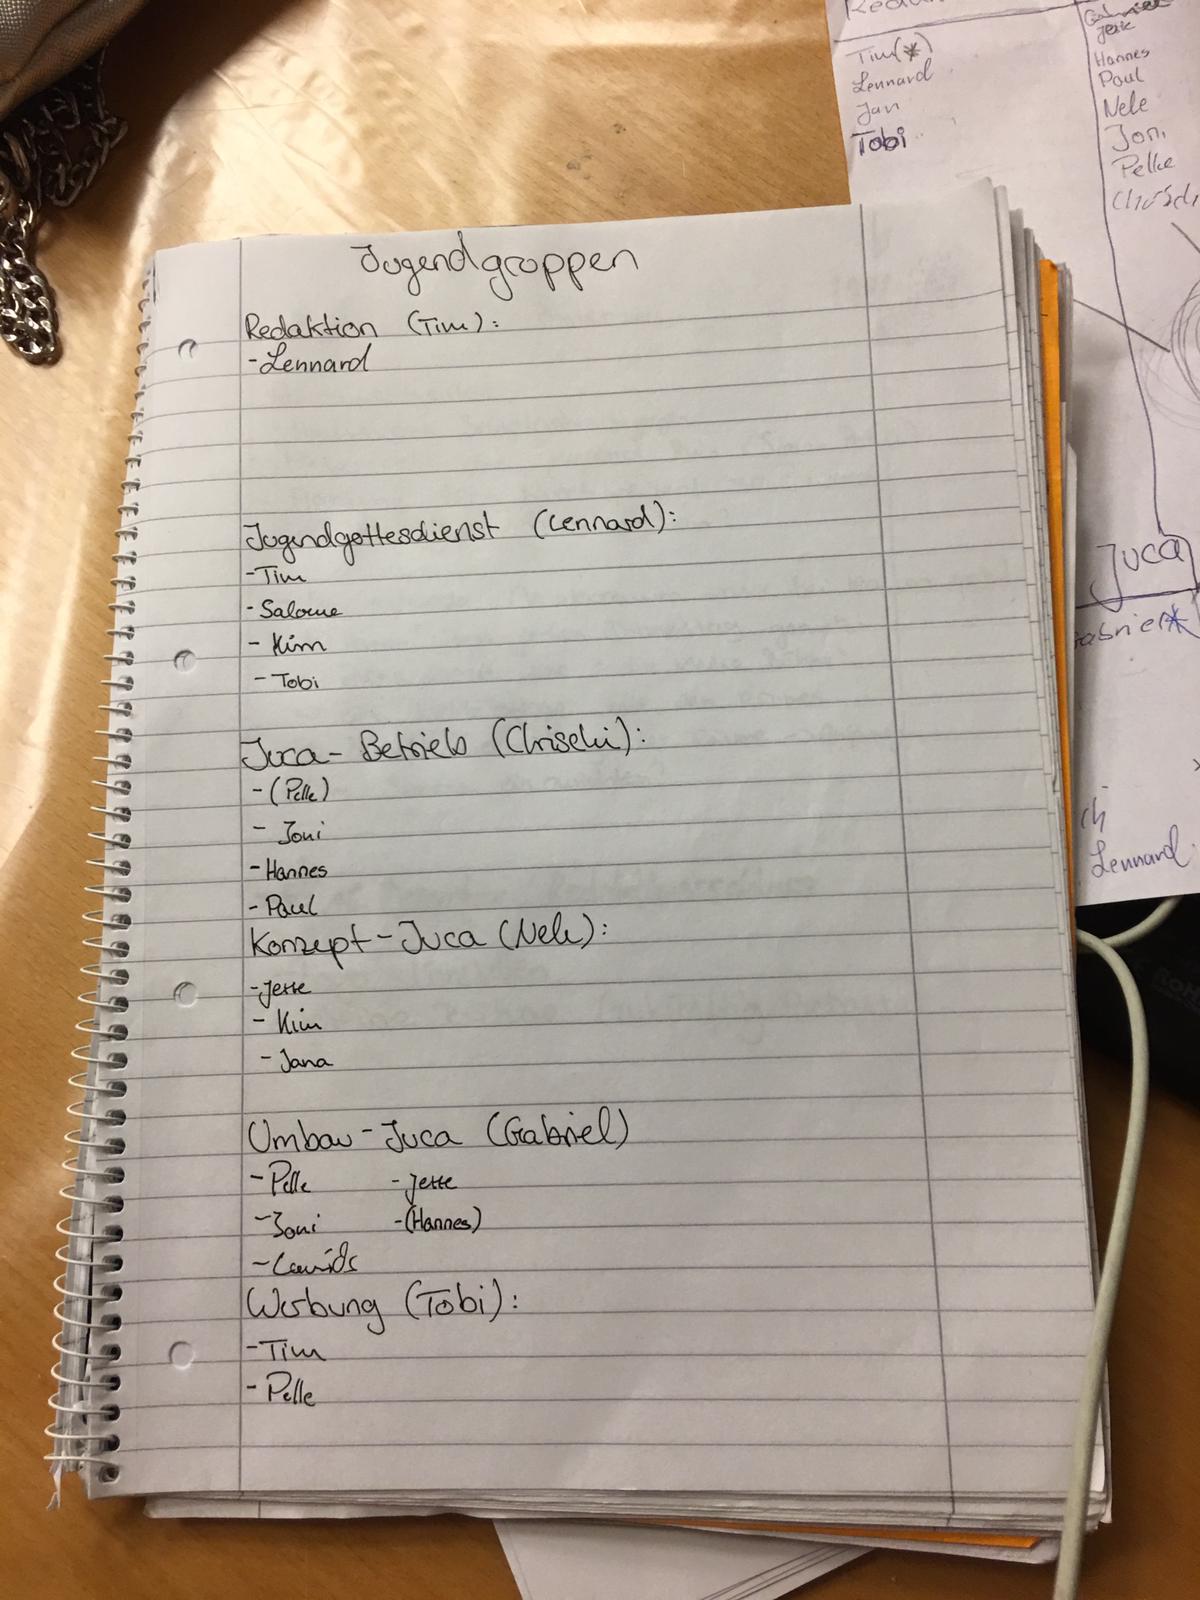 Jugendgruppen
Redaktion (Tim):
-Lennard
Jugendgottesdienst (Lennard):
-Tim
-Salome
- Kim
- Tobi
Juca- Betrieb (Chrischi):
-(Pelle)
- Joni
-Hannes
-Paul
Konzept-Juca (Nele):
-Jette
- Kim
- Jana
Umbau-Juca (Gabriel)
-Pelle -Jette
-Joni -(Hannes)
Werbung (Tobi):
-Tim
- Pelle
Tim(*)
Lennard
Jan
Tobi
Gabriel
Jette
Hannes
Paul
Nele
Joni
Pelle
Juca
Gabriel*
Lennard